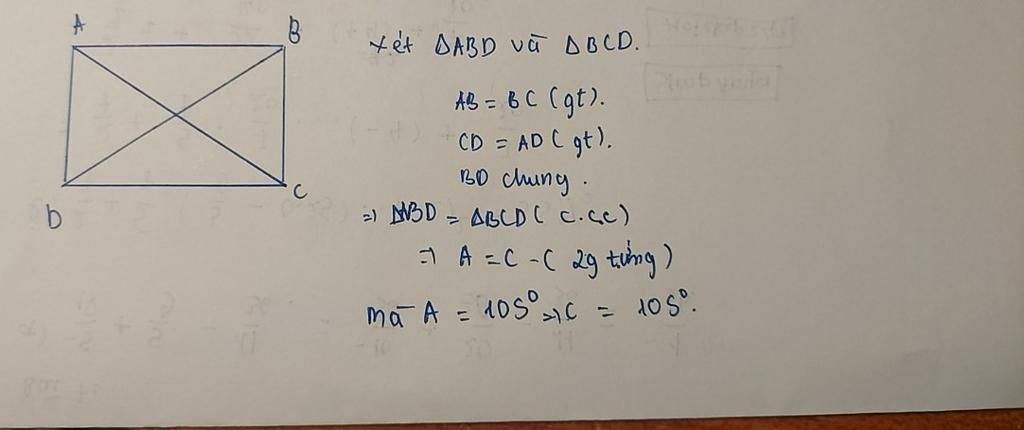 A
B
D
C
xét ΔABD và ΔBCD.
AB = BC (gt).
CD = AD (gt).
BD chung.
=> ΔABD = ΔBCD (c.c.c)
=> A = C - ( 2g tứng)
mà A = 105° => C = 105°.